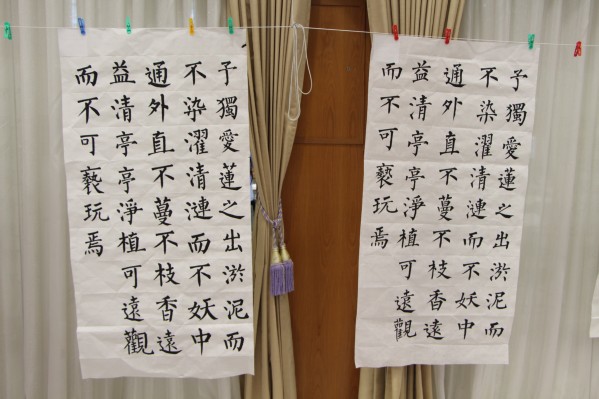 子獨愛蓮之出淤泥而
不染濯清漣而不妖中
通外直不蔓不枝香遠
益清亭亭淨植可遠觀
而不可褻玩焉
子獨愛蓮之出淤泥而
不染濯清漣而不妖中
通外直不蔓不枝香遠
益清亭亭淨植可遠觀
而不可褻玩焉